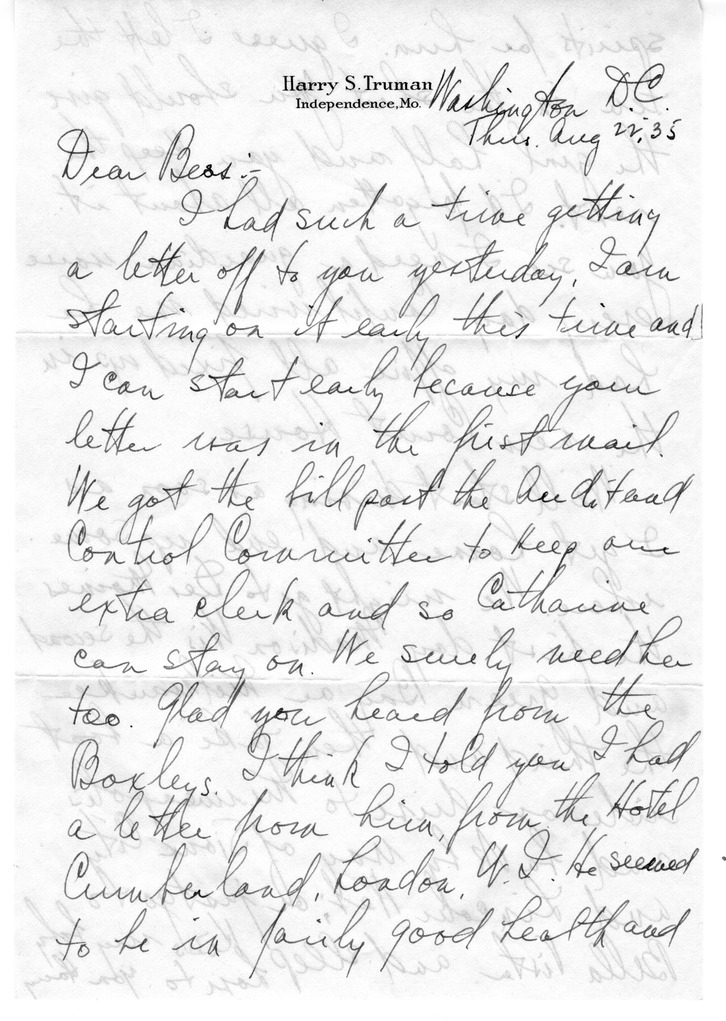 Harry S. Truman
Independence, Mo.
Washington D.C.
Thurs. Aug 22, 35
Dear Bess:-
I had such a time getting
a letter off to you yesterday, I am
starting on it early this time and
I can start early because your
letter was in the first mail.
We got the bill past the Audit and
Control Committee to keep our
extra clerk and so Catharine
can stay on. We surely need her
too. Glad you heard from the
Boxleys. I think I told you I had
a letter from him, from the Hotel
Cumberland, London, W.I. He seemed
to be in fairly good health and